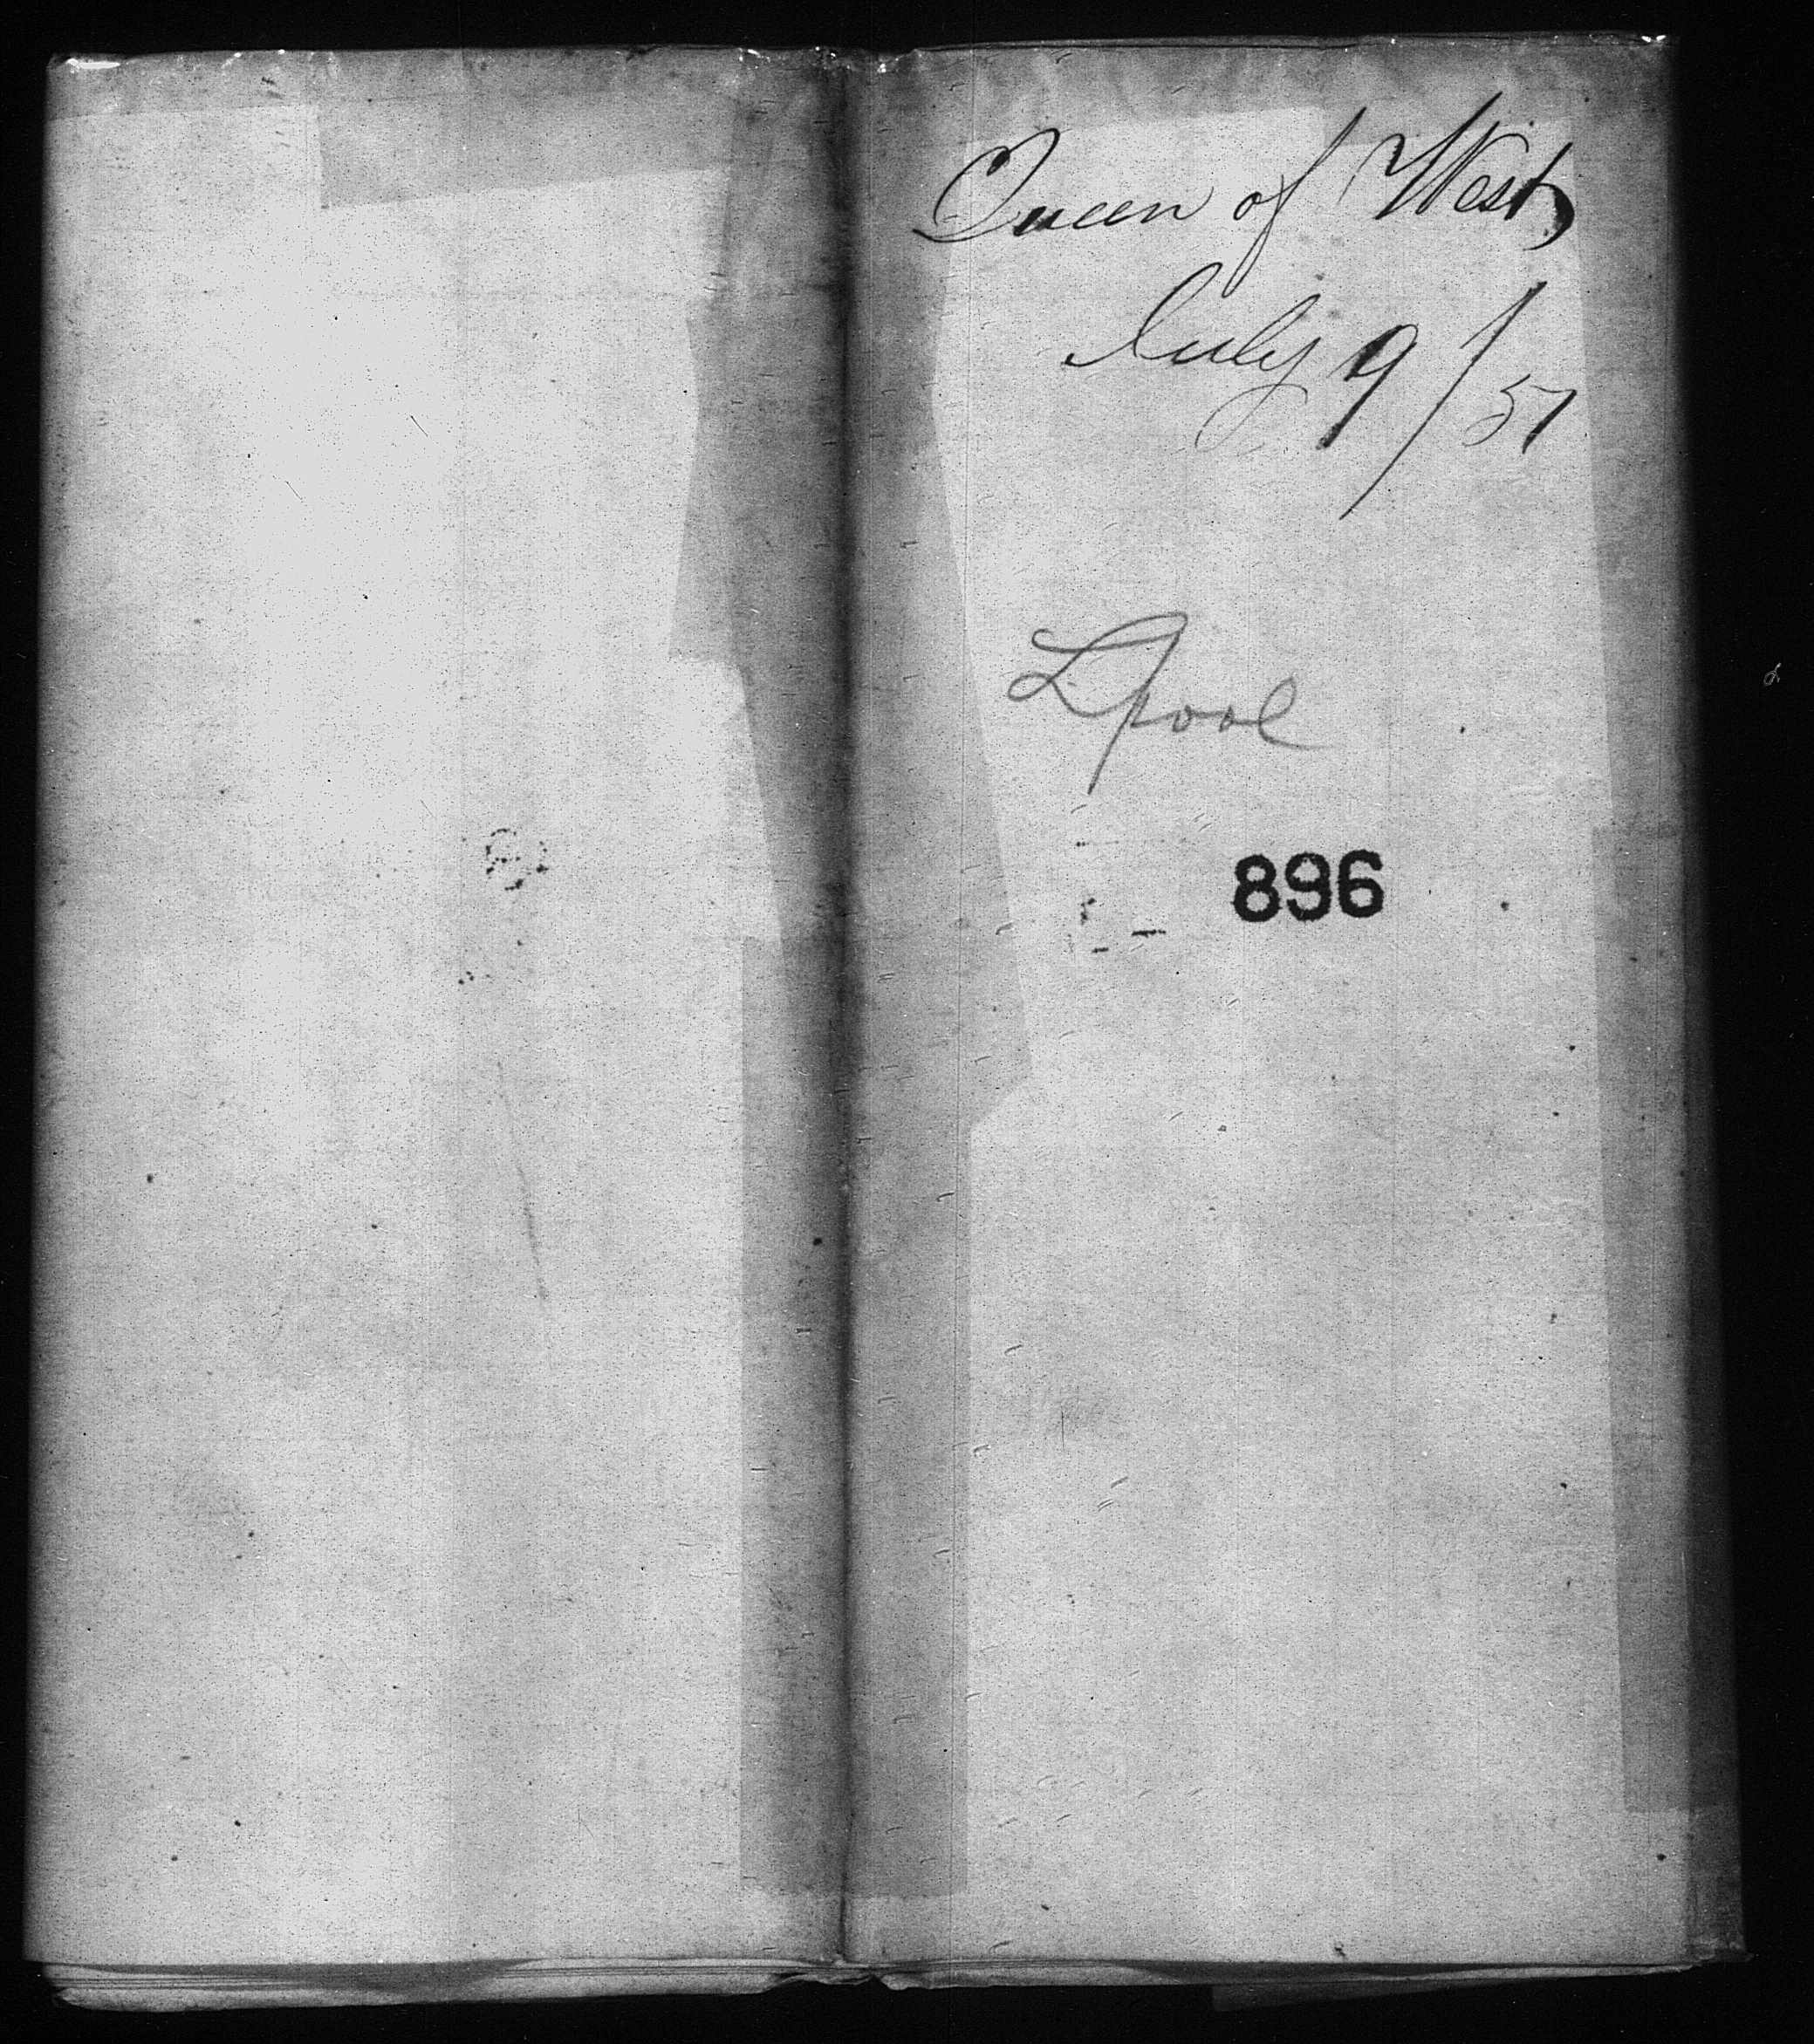 Queen of West
July 9/51
Lpool
896